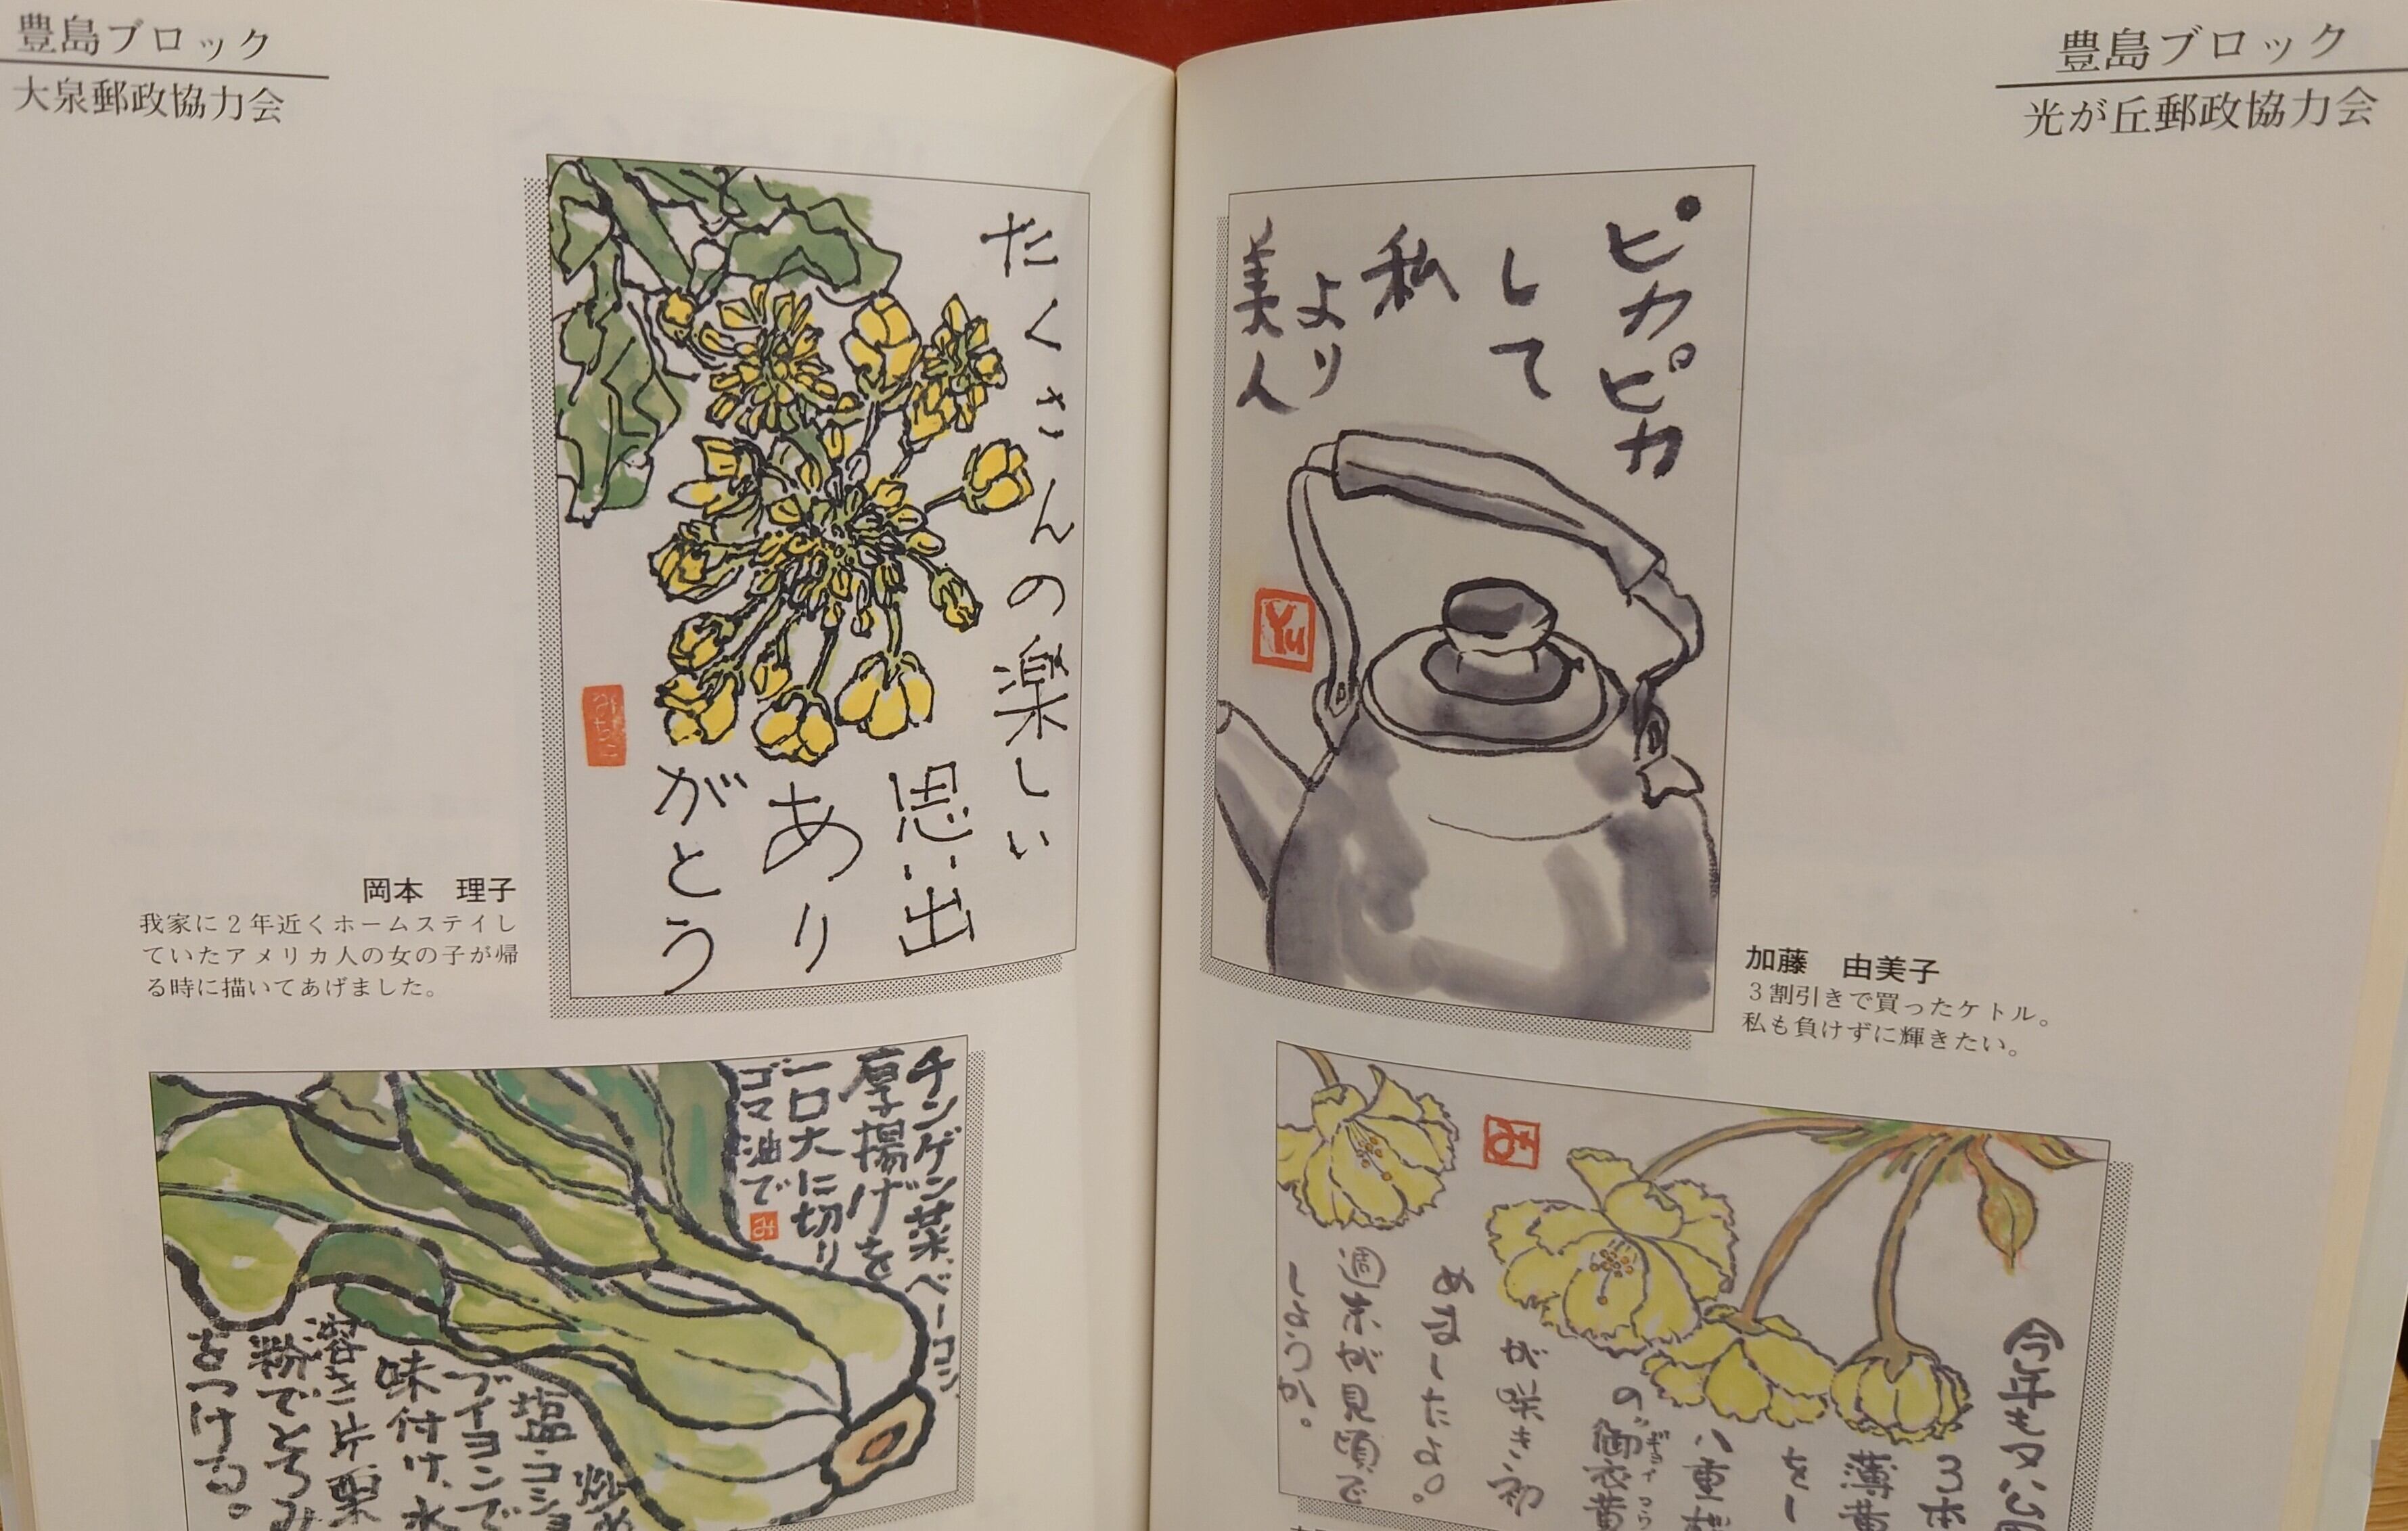 豊島ブロック
大泉郵政協力会
たくさんの楽しい
思い出
あり
がとう
みちこ
岡本 理子
我家に2年近くホームステイし
ていたアメリカ人の女の子が帰
る時に描いてあげました。
チンゲン菜、ベーコン、
厚揚げを
一口大に切り
ゴマ油で
み
炒め
塩・コショ
ブイヨンで
味付け、水
溶き片栗
粉でとろみ
をつける。
豊島ブロック
光が丘郵政協力会
ピカピカ
して
私
より
美人
Yu
加藤 由美子
3割引きで買ったケトル。
私も負けずに輝きたい。
今年も又公園
3本
薄黄
をし
八重桜
の〝御衣黄
ギョイコウ
が咲き初
めましたよ。
週末が見頃で
しょうか。